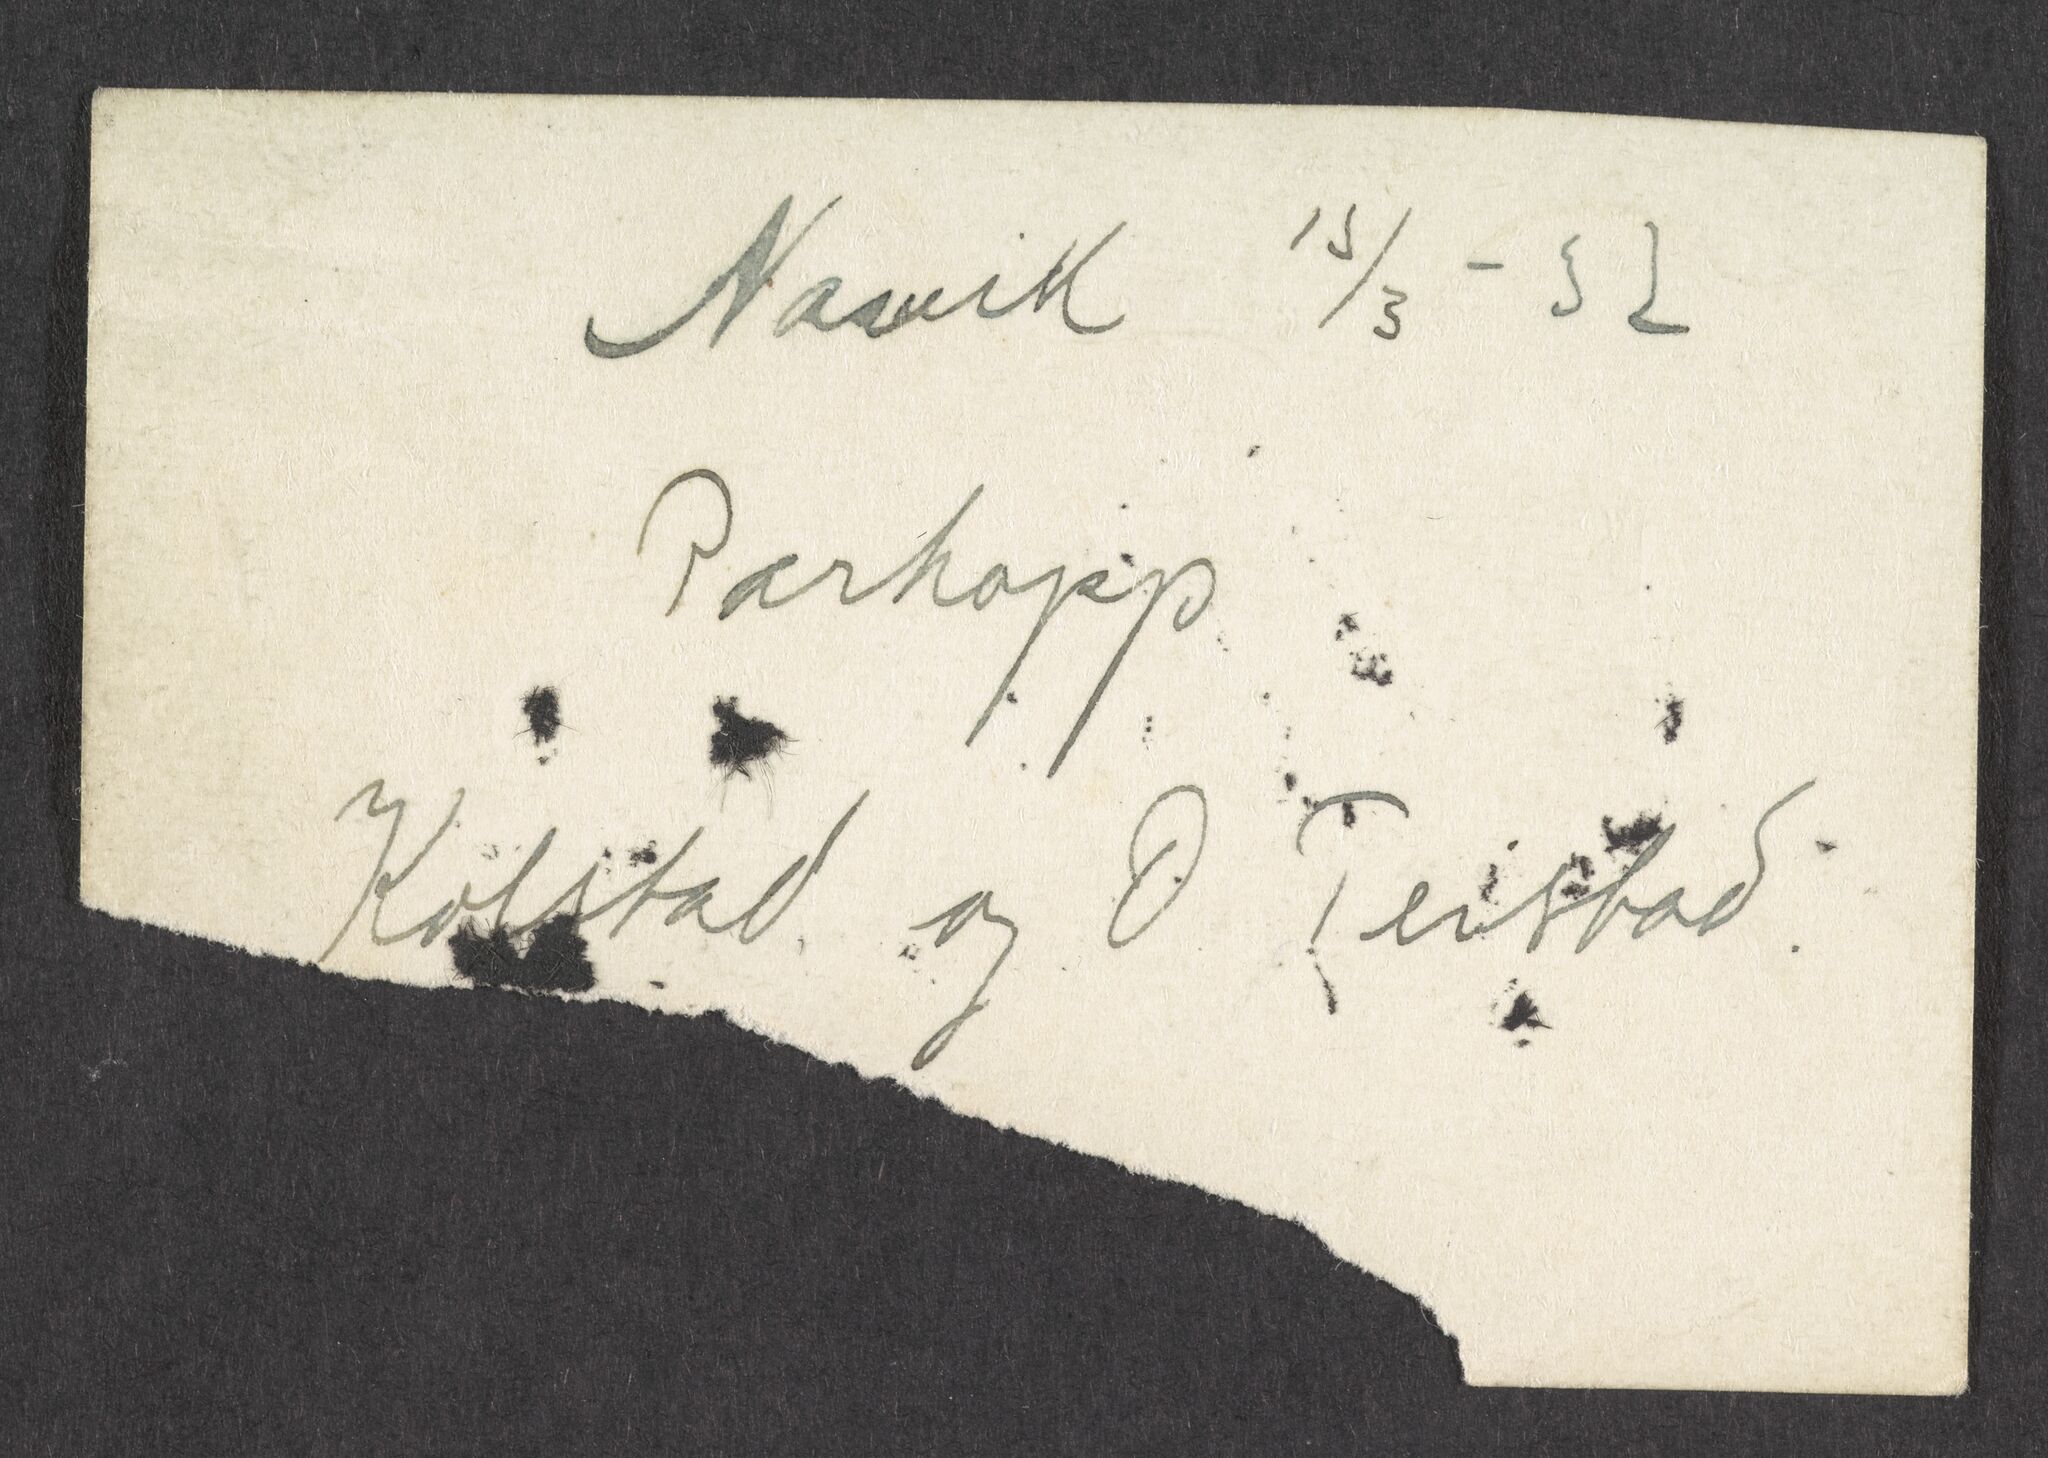 Narvik 15/3 - 52
Parhopp
Kolstad og O Teistad.